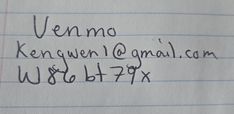 Venmo
Kengwen1@gmail.com
W86bt79x